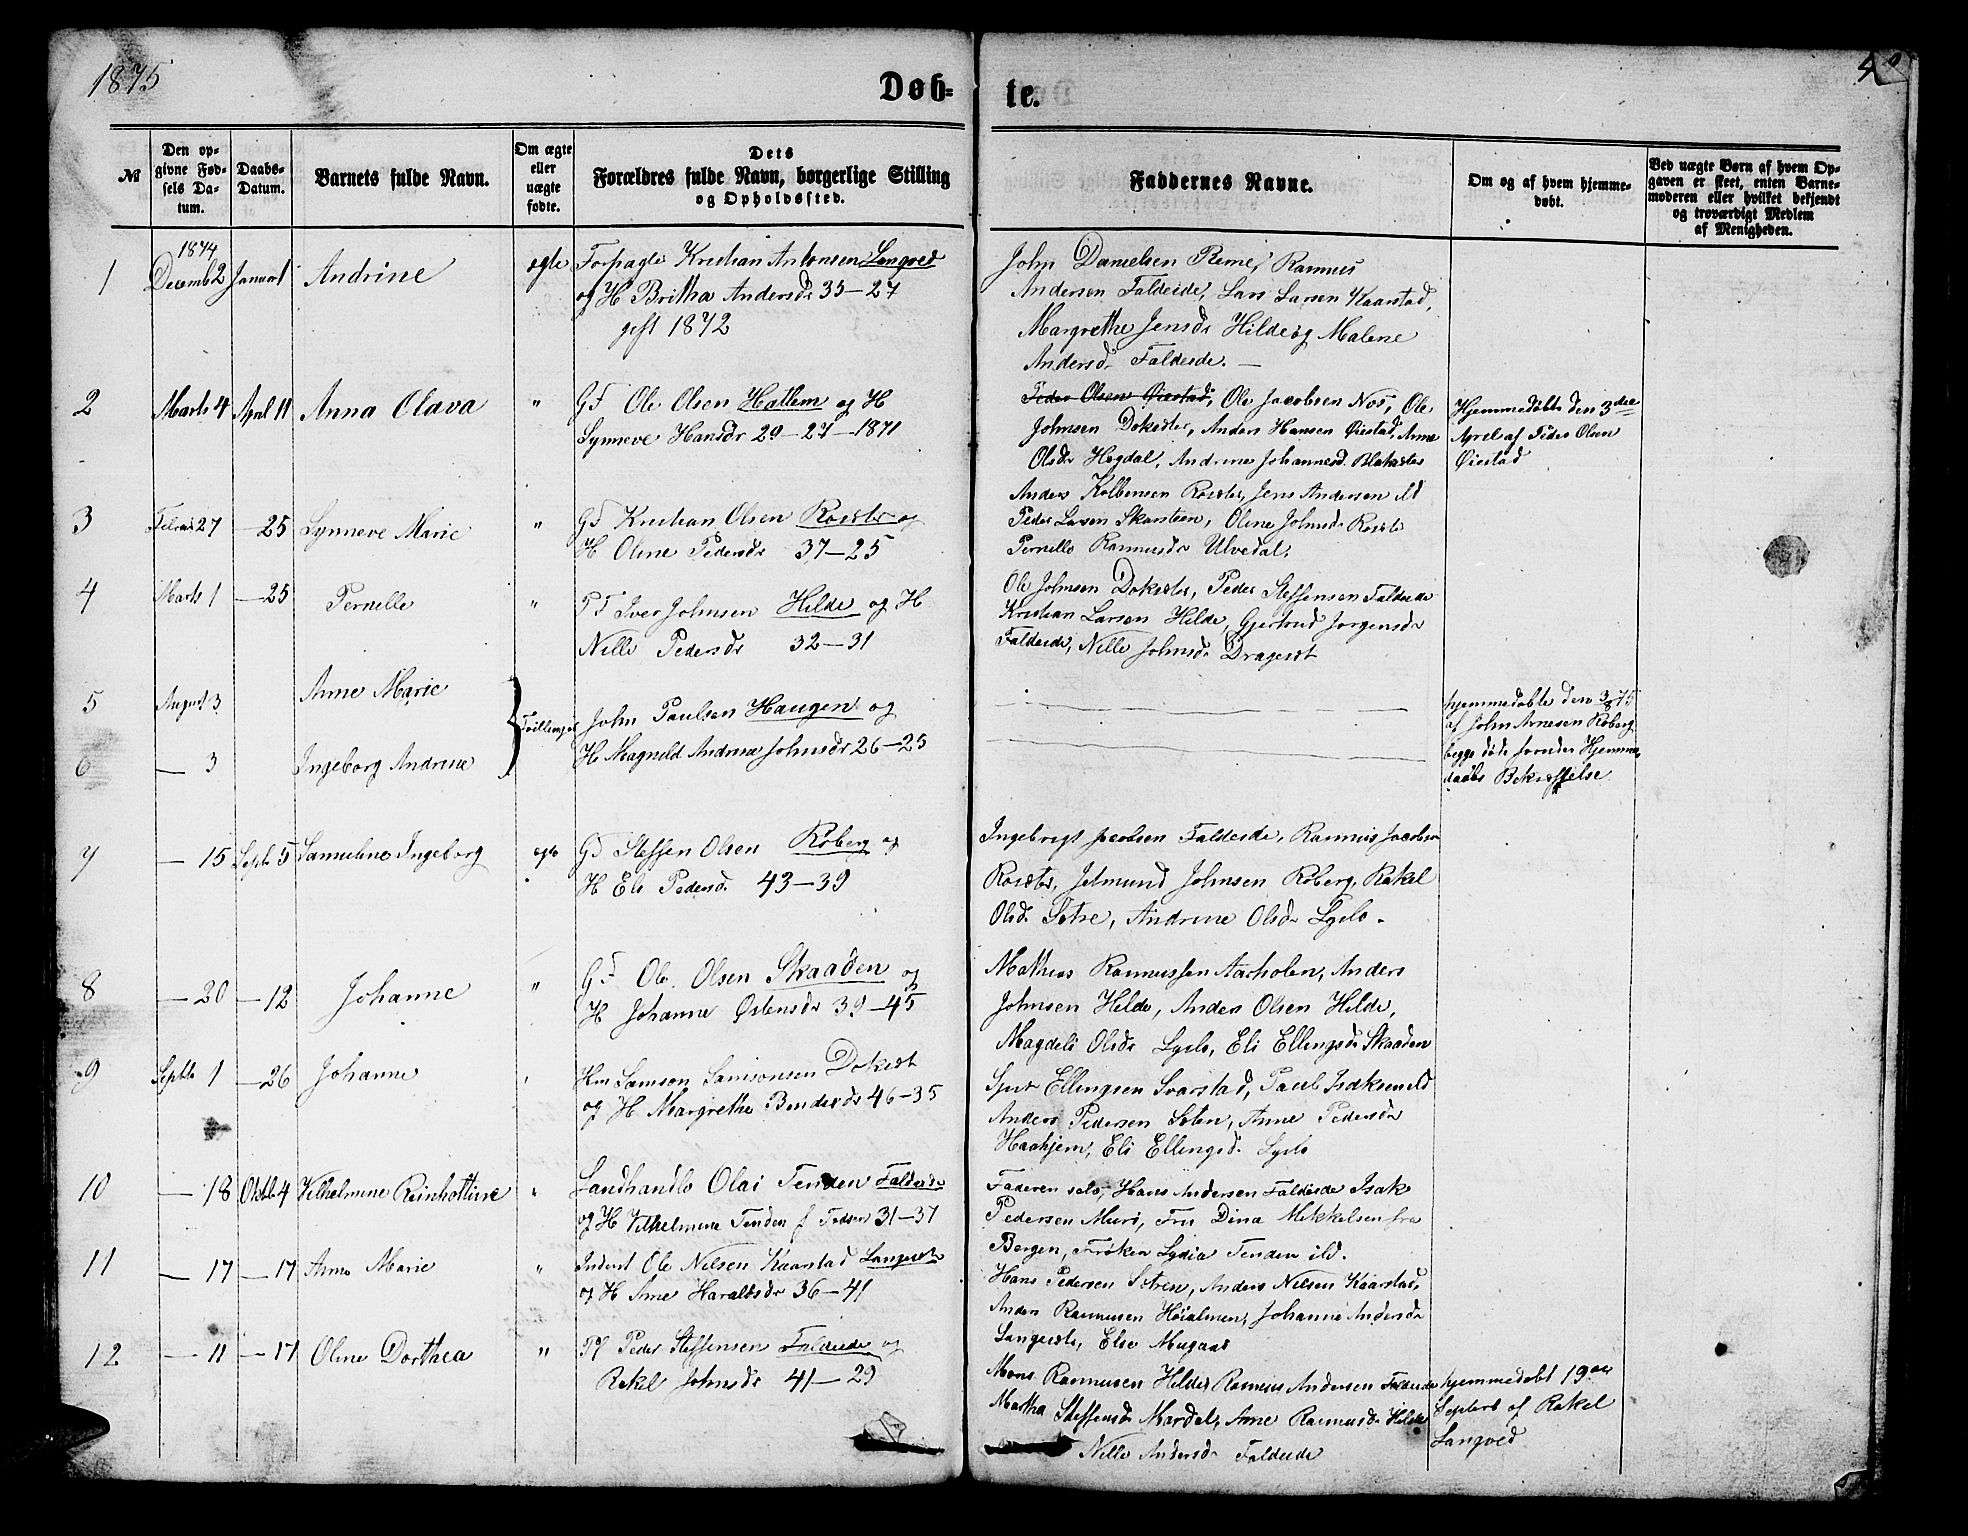 1875
Døb-
te.
№
Den opgivne Fødsels Datum.
Daabs-Datum.
Barnets fulde Navn.
Om ægte eller uægte fødte.
Dets Forældres fulde Navn, borgerlige Stilling og Opholdssted.
Faddernes Navne.
Om og af hvem hjemmedøbt.
Ved uægte Børn af hvem Opgaven er skeet, enten Barnemoderen eller hvilket bekjendt og troværdigt Medlem af Menigheden.
1874
1 Decemb 2 Januar 1 Andrine ægte Forpagte Kristian Antonsen Langved
og H Britha Andersdr 35-27
gift 1872
John Danielsen Reme, Rasmus
Andersen Faldeide, Lars Larsen Kaarstad,
Margrethe Jensdr Hilde og Malene
Andersdr Faldeide. —
2 Marts 4 April 11 Anna Olava " GF Ole Olsen Hatlem og H
Synneve Hansdr 29-27-1871
Peder Olsen Øiestad, Ole Jacobsen Nos, Ole
Johnsen Dokset, Anders Hansen Øiestad, Anne
Olsdr Hogdal, Andrine Johannesd.
Hjemmedøbt den 3die
April af Peder Olsen
Øiestad
3 Februar 27 — 25 Synneve Marie " GF Kristian Olsen og
H Oline Pedersdr 37-25
Anders Kolbensen Jens Andersen ild
Peder Larsen Skarsteen, Oline Johnsdr
Pernelle Rasmusdr Ulvedal.
4 Marts 1 — 25 Pernelle " PF Iver Johnsen Hilde og H
Nille Pedersdr 32-31
Ole Johnsen Peder Steffensen Faldeide
Kristian Larsen Hilde, Gjertrud Jørgensdr
Faldeide, Nille Johnsdr Dragesæt
5 August 3 Anne Marie Tvillinger John Paulsen Haugen og
6 — 3 Ingeborg Andrine H Magnild Andrea Johnsdr 26-25
hjemmedøbte den 3/8 75
af John Arnesen Roberg
begge døde forinden Hjemme
daabs Bekræftelse
7 — 15 Septb 5 Samueline Ingeborg ægte GF Steffen Olsen Roberg og
H Eli Pedersd. 43-39
Ingebrigt Jacobsen Faldeide, Rasmus Jacobsen
Jetmund Johnsen Roberg, Rakel
Olsd. Sætre, Andrine Olsdr Lyslo.
8 — 20 — 12 Johanne " GF Ole Olsen Skaaden og
H Johanne Østensdr 39-45
Mathias Rasmussen Aarholen, Anders
Johnsen Hilde, Anders Olsen Hilde,
Magdeli Olsdr Lyslo, Eli Ellingsdr Skaaden
9 Septb 1 — 26 Johanne Hm Samson Samsonsen Doksæt
og H Margrethe 46-35
Ellingsen Svarstad, Paul Isaksen ild
Anders Pedersen Anne Pedersdr
Haahjem, Eli Ellingsd. Lyslo
10 — 18 Oktbr 4 Vilhelmine Reinholtine " Landhandle Olai Tenden Faldeide
og H Vilhelmine Tenden f 31-37
Faderen selv, Hans Andersen Faldeide Isak
Pedersen Muri, Fru Dina Mikkelsen fra
Bergen, Frøken Lydia Tenden ild.
11 — 17 — 17 Anne Marie " Inderst Ole Nilsen Kaarstad
og H Ane Haraldsdr 36-41
Hans Pedersen Sætren, Anders Nilsen Kaarstad,
Anders Rasmusen Johanne Andersdr
Else Mugaas
12 — 11 — 17 Oline Dorthea " Peder Steffensen Faldeide og
Rakel Johnsdr 41-29
Mons Rasmusen Hilde, Rasmus Andersen Faldeide
Martha Steffensdr Mardal, Ane Rasmusdr Hilde
Nille Andersdr Faldeide
hjemmedøbt 19de
Septbr af Rakel
Langved